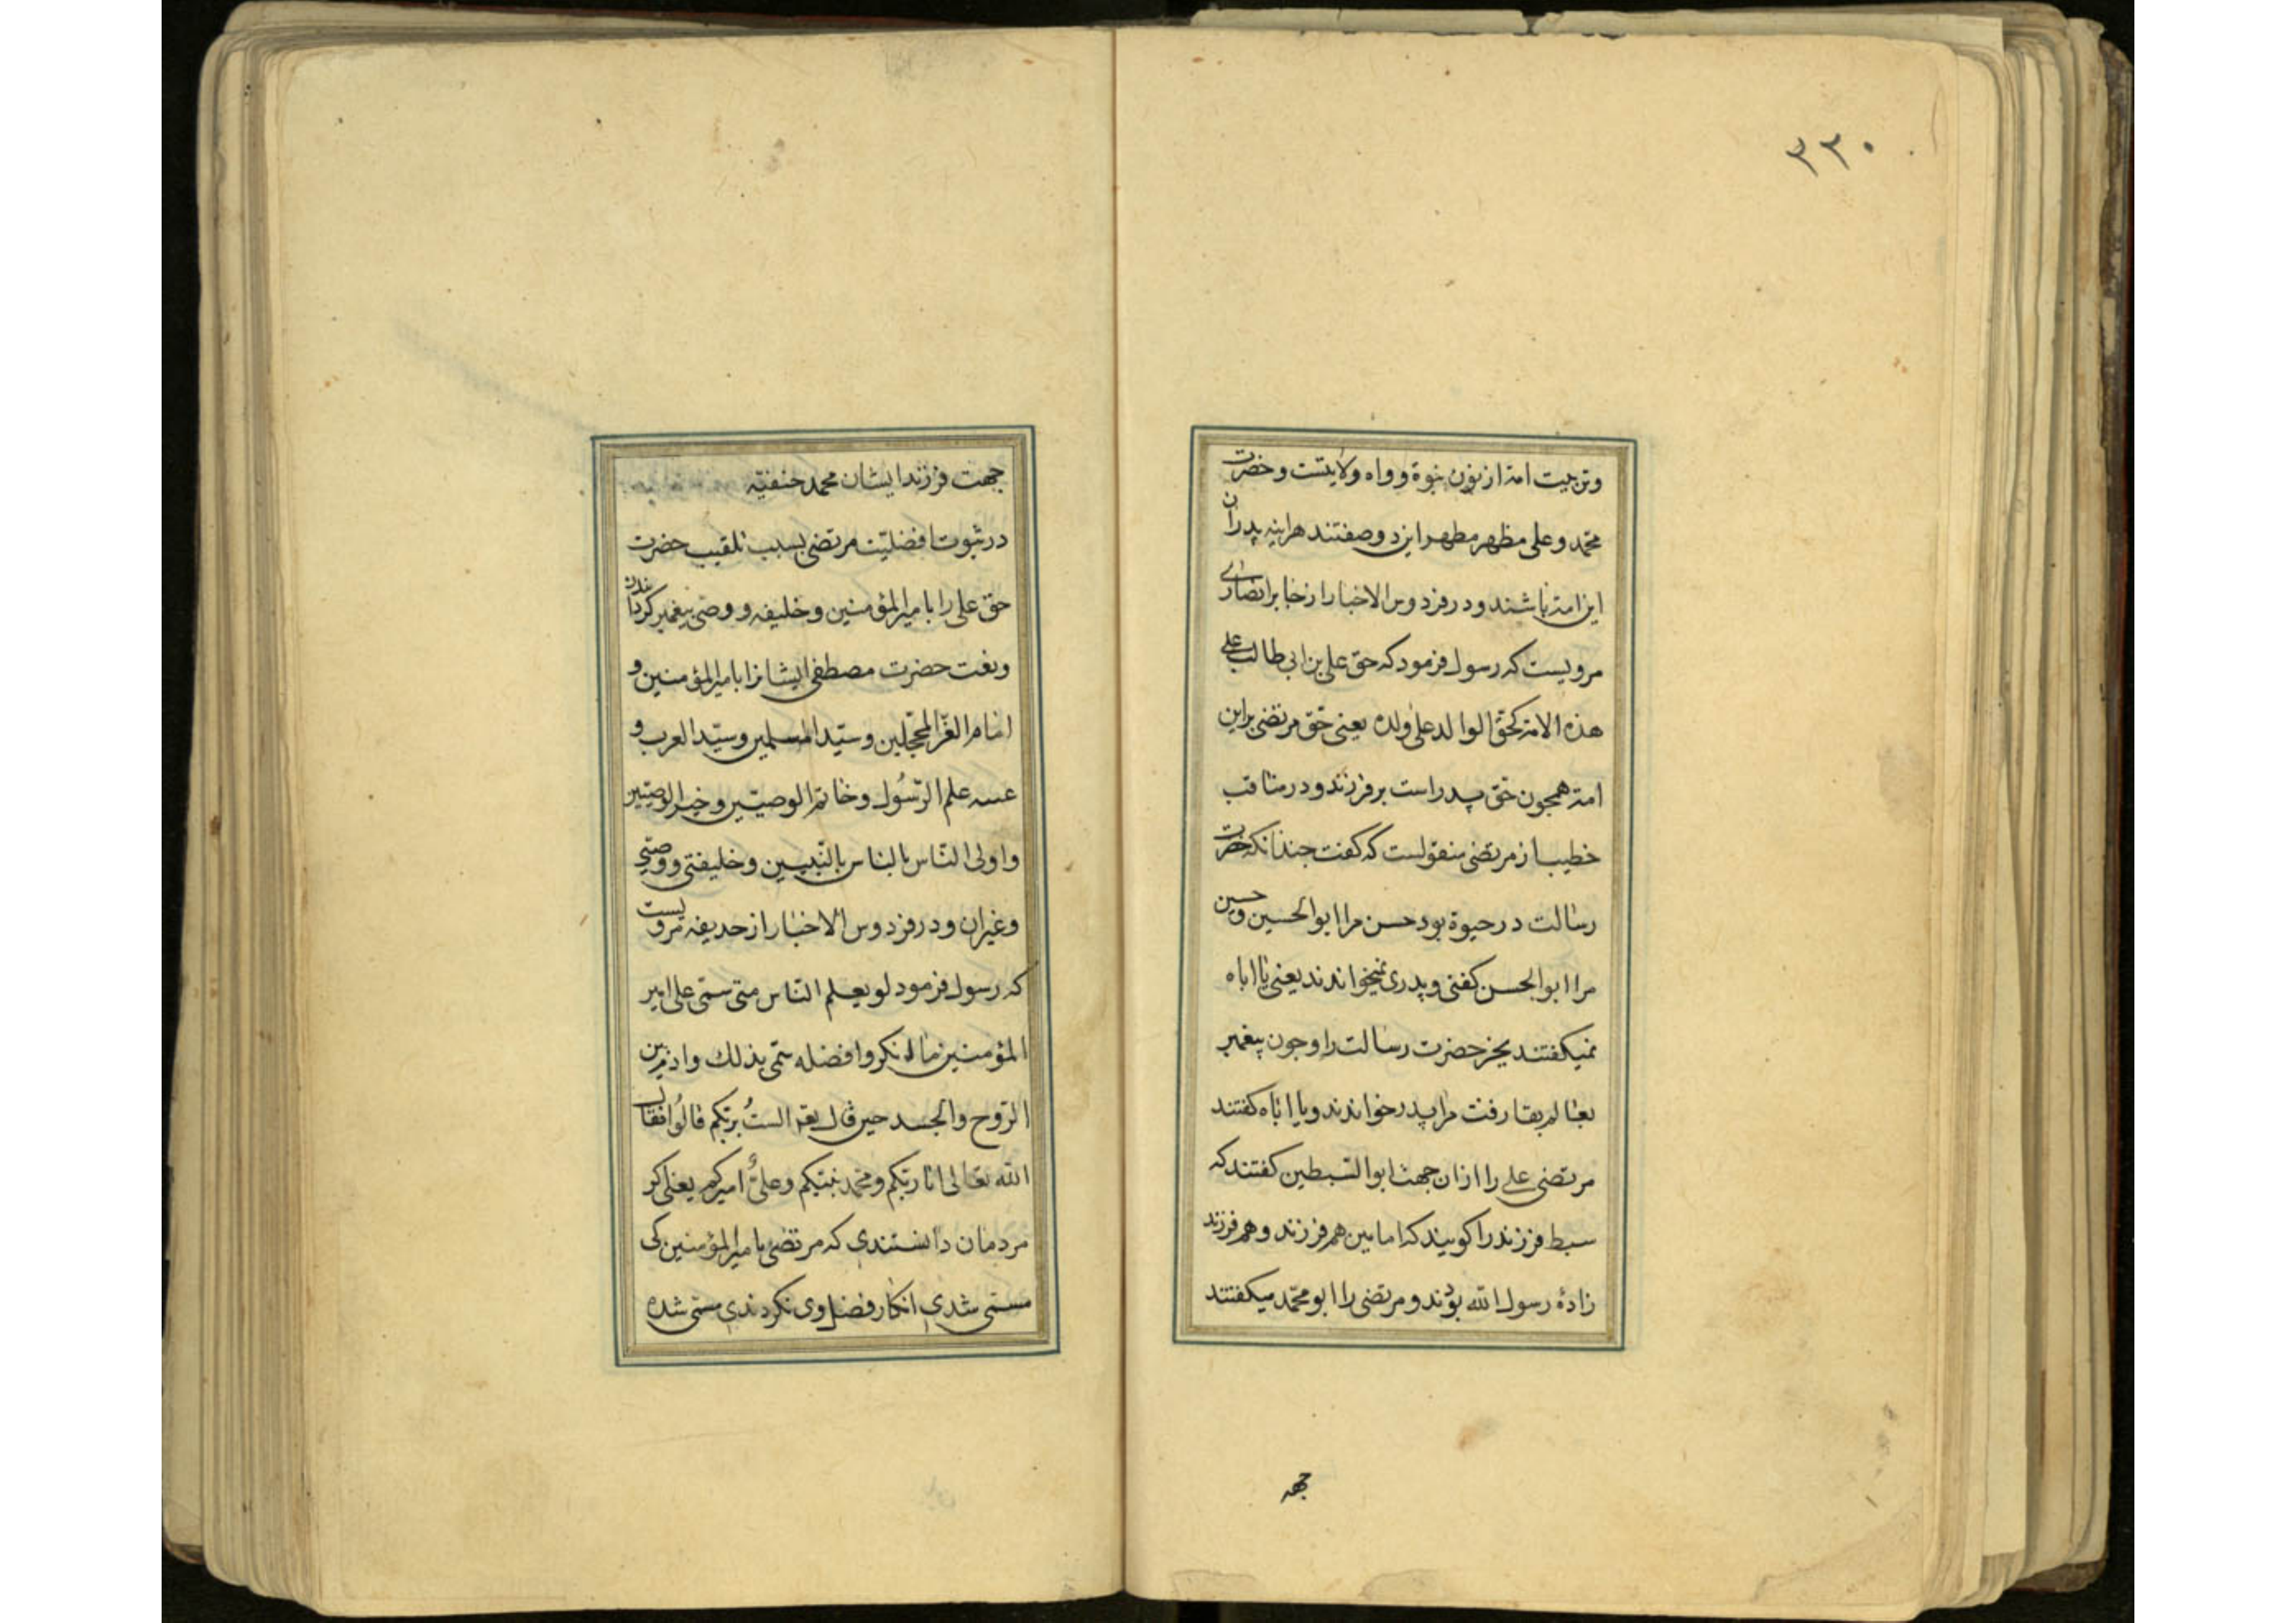 ۳۳۰
وتربیت امة از نون نبوة و واو ولایتست وحضرت
محمّد وعلی مظهر مطهر این دو صفتند هراینه پدران
این امة باشند ودر فردوس الاخبار از جابر انصاری
مرویست که رسول فرمود که حق علی بن ابی طالب علی
هذه الامة کحقّ الوالد علی ولده یعنی حقّ مرتضی براین
امة همچون حق پدر است بر فرزند ودر مناقب
خطیب از مرتضی منقولست که کفت جندانکه حضرت
رسالت در حیوة بود حسن مرا ابوالحسین وحسین
مرا ابوالحسن کفتی وپدری نمیخواندند یعنی یا اباه
نمیکفتند بجز حضرت رسالت را وجون پیغمبر
بعالم بقا رفت مرا پدر خواندند ویا اباه کفتند
مرتضی علی را ازان جهت ابوالسّبطین کفتند که
سبط فرزند را کویند که امامین هم فرزند وهم فرزند
زادهٔ رسول الله بودند ومرتضی را ابو محمّد میکفتند
جهة
جهت فرزند ایشان محمد حنفیّه
در ثبوت افضلیّت مرتضی بسبب تلقیب حضرت
حق علی را بامیرالمؤمنین وخلیفه ووصی پیغمبر کردانیدن
ونعت حضرت مصطفی ایشانرا بامیرالمؤمنین و
امام الغرّ المحجّلین وسیّد المسلمین وسیّد العرب و
عیبه علم الرّسُول وخاتم الوصیّین وخیر الوصیّین
واولی النّاس بالناس بالنّبیین وخلیفتی ووصیّی
وغیران ودر فردوس الاخبار از حذیفه مرویست
که رسول فرمود لو یعلم النّاس متی سمّی علی امیر
المؤمنین ما انکروا فضله سمّی بذلک وادم بین
الرّوح والجسد حین قال الستُ بربّکم قالُوا فقال
الله تعالی انا ربّکم ومحمّد نبیّکم وعلیٌّ امیرکم یعنی اکر
مردمان دانستندی که مرتضی بامیرالمؤمنین کی
مسمّی شدی انکار فضل وی نکردندی مسمّی شده